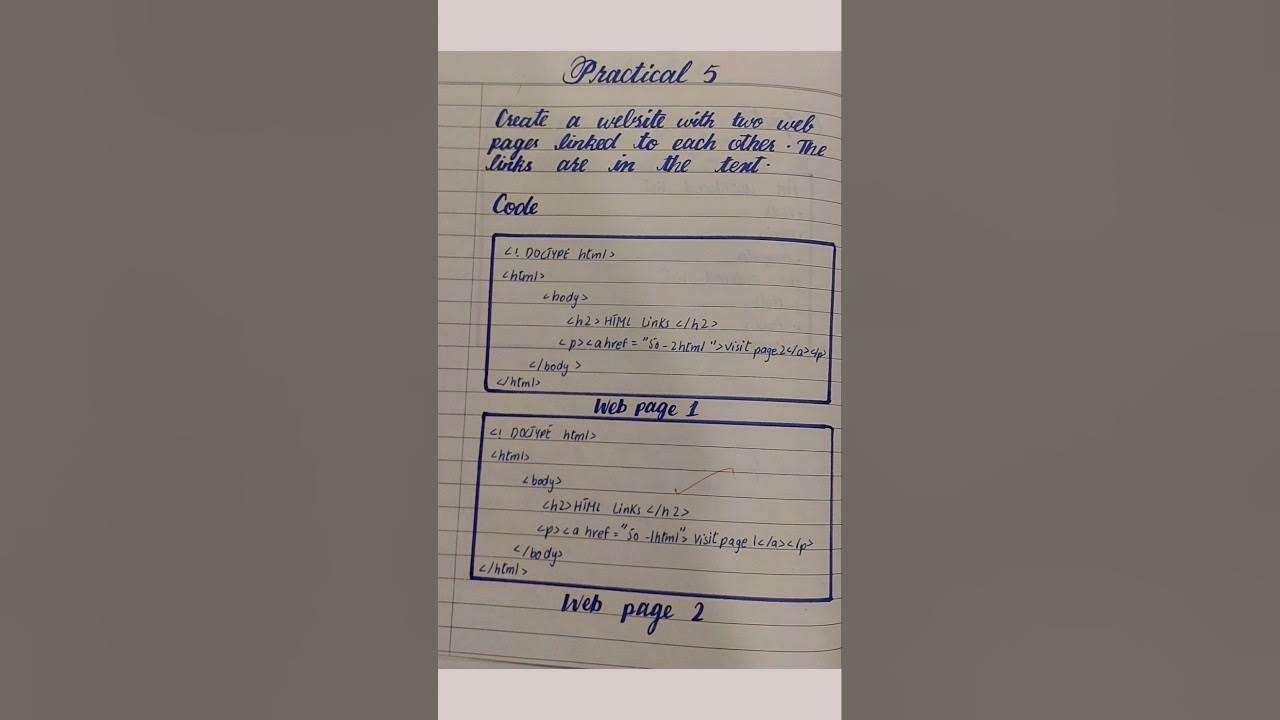 Practical 5
Create a website with two web
pages linked to each other. The
links are in the text.
Code
<! DOCTYPE html>
<html>
<body>
<h2> HTML Links </h2>
<p><a href = "50-2html"> Visit page 2</a></p>
</body>
</html>
Web page 1
<! DOCTYPE html>
<html>
<body>
<h2> HTML Links </h2>
<p><a href = "50-1html"> Visit page 1</a></p>
</body>
</html>
Web page 2